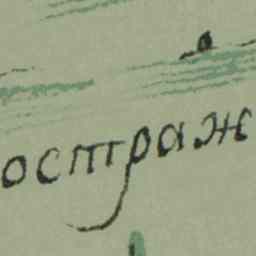 остраж